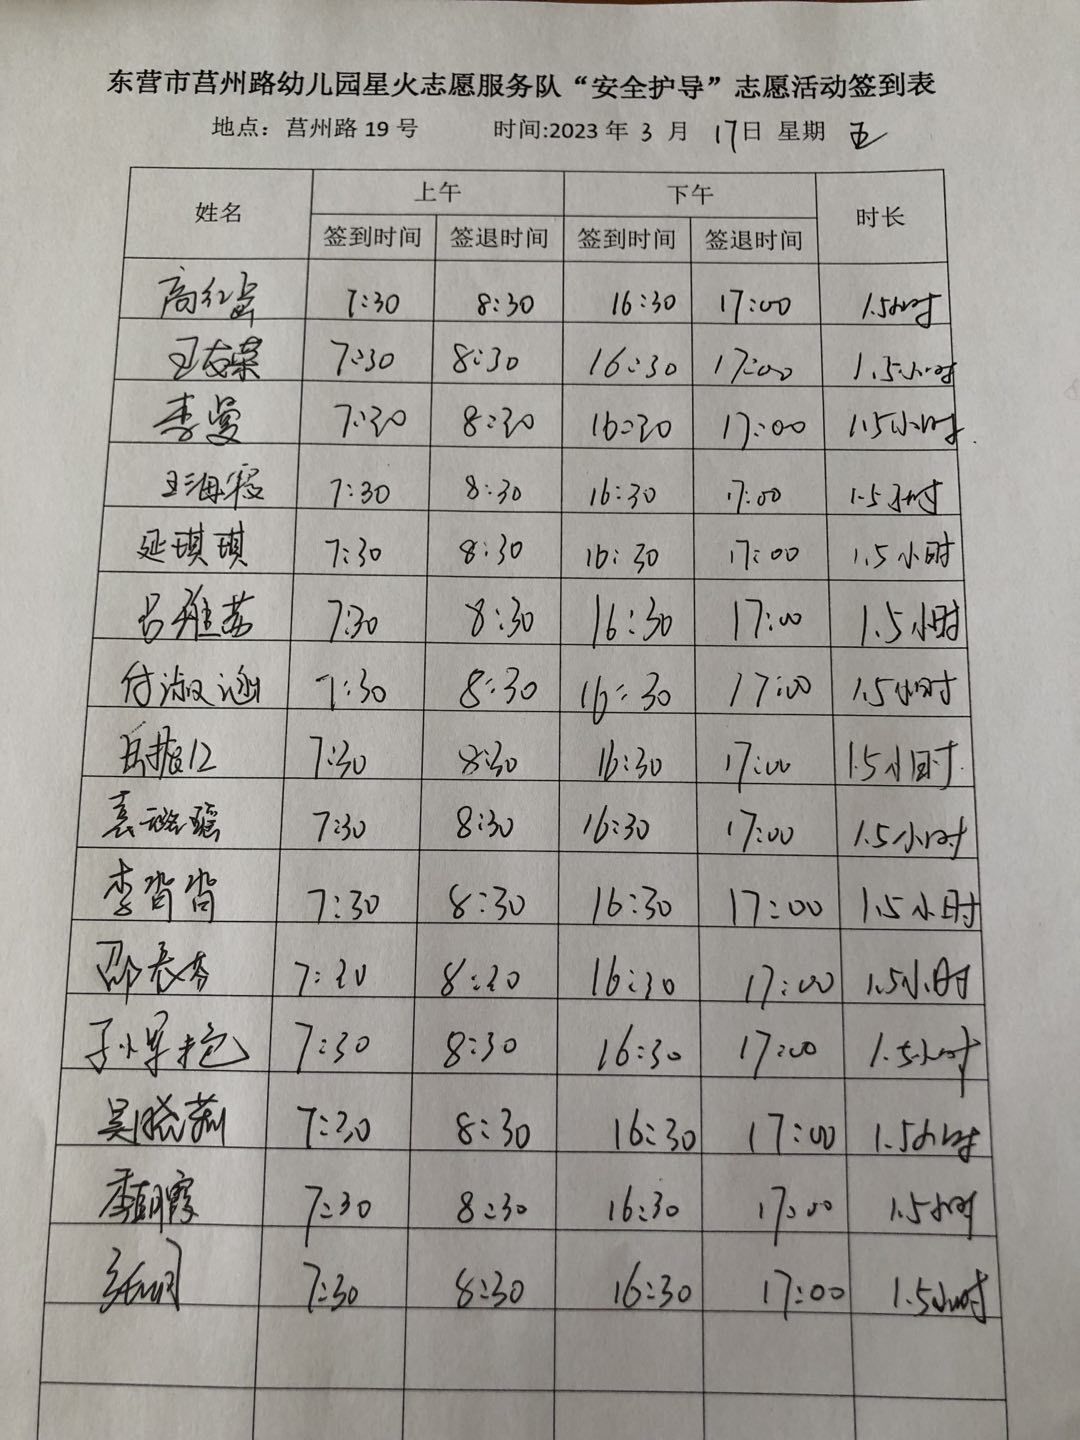 东营市莒州路幼儿园星火志愿服务队“安全护导”志愿活动签到表
地点：莒州路19号 时间:2023年3月17日 星期五
姓名 上午 下午 时长
签到时间 签退时间 签到时间 签退时间
7:30 8:30 16:30 17:00 1.5小时
王友荣 7:30 8:30 16:30 17:00 1.5小时
李曼 7:30 8:30 16:30 17:00 1.5小时
王海霞 7:30 8:30 16:30 17:00 1.5小时
延琪琪 7:30 8:30 16:30 17:00 1.5小时
吕雅茹 7:30 8:30 16:30 17:00 1.5小时
付淑涵 7:30 8:30 16:30 17:00 1.5小时
7:30 8:30 16:30 17:00 1.5小时
袁璐瑶 7:30 8:30 16:30 17:00 1.5小时
李沓沓 7:30 8:30 16:30 17:00 1.5小时
邵长芬 7:30 8:30 16:30 17:00 1.5小时
7:30 8:30 16:30 17:00 1.5小时
吴晓莉 7:30 8:30 16:30 17:00 1.5小时
李朝霞 7:30 8:30 16:30 17:00 1.5小时
7:30 8:30 16:30 17:00 1.5小时